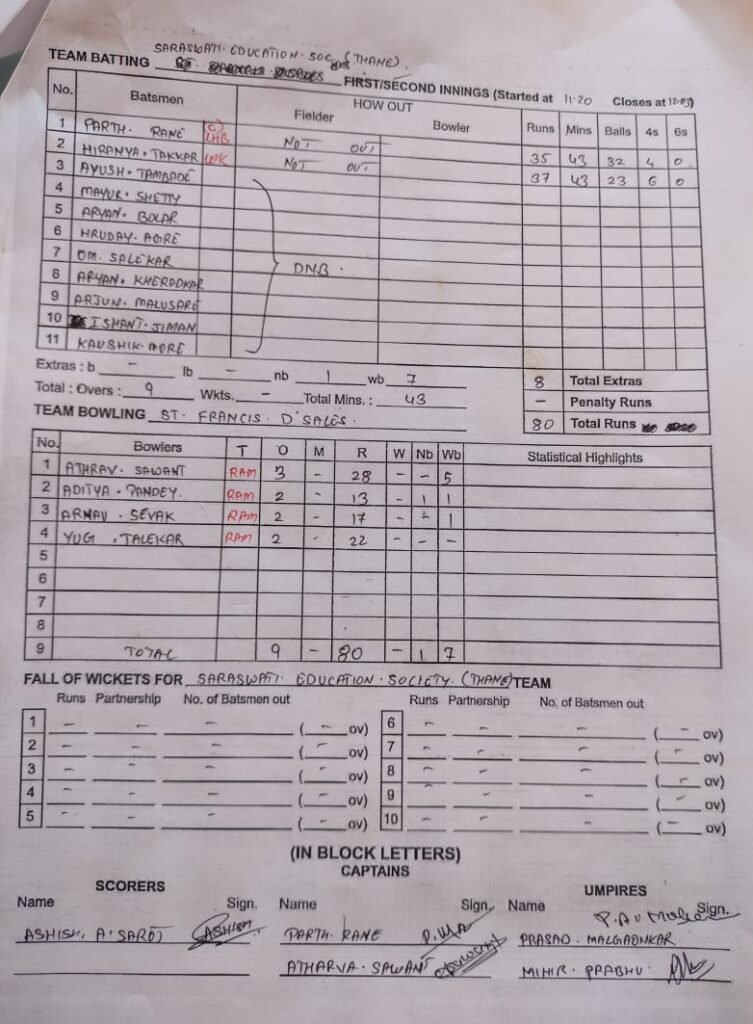 SARASWATI. EDUCATION. SOC. (THANE).
TEAM BATTING FIRST/SECOND INNINGS (Started at 11.20 Closes at 12.03)
No. Batsmen HOW OUT
Fielder Bowler Runs Mins Balls 4s 6s
1 PARTH. RANE (C) LHB NOT OUT 35 43 32 4 0
2 HIRANYA. TAKKAR WK NOT OUT 37 43 23 6 0
3 AYUSH. TAMBADE
4 MAYUR. SHETTY
5 ARYAN. BOLAR
6 HRUDAY. AGRE
7 OM. SALEKAR DNB.
8 ARYAN. KHERADKAR
9 ARJUN. MALUSARE
10 ISHANT. JIMAN
11 KAUSHIK. MORE
Extras : b - lb - nb 1 wb 7 8 Total Extras
Total : Overs : 9 Wkts. - Total Mins. : 43 - Penalty Runs
TEAM BOWLING ST. FRANCIS. D'SALES. 80 Total Runs
No. Bowlers T O M R W Nb Wb Statistical Highlights
1 ATHRAV. SAWANT RAM 3 - 28 - - 5
2 ADITYA. PANDEY. RAM 2 - 13 - 1 1
3 ARNAV. SEVAK RAM 2 - 17 - - 1
4 YUG. TALEKAR RAM 2 - 22 - - -
5
6
7
8
9 TOTAL 9 - 80 - 1 7
FALL OF WICKETS FOR SARASWATI. EDUCATION. SOCIETY. (THANE) TEAM
Runs Partnership No. of Batsmen out Runs Partnership No. of Batsmen out
1 - - - ( - ov) 6 - - - ( - ov)
2 - - - ( - ov) 7 - - - ( - ov)
3 - - - ( - ov) 8 - - - ( - ov)
4 - - - ( - ov) 9 - - - ( - ov)
5 - - - ( - ov) 10 - - - ( - ov)
(IN BLOCK LETTERS)
SCORERS CAPTAINS UMPIRES
Name Sign. Name Sign. Name Sign.
ASHISH. A. SAROJ ASHISH PARTH RANE PRASAD. MALGAONKAR
ATHARVA. SAWANT MIHIR. PRABHU.